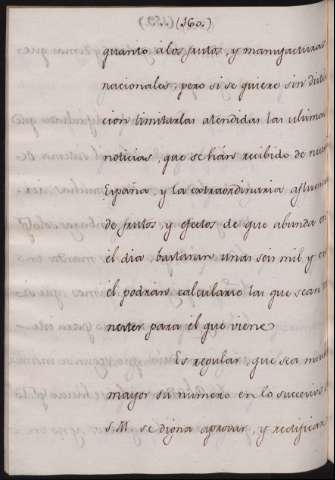 (160.)
quanto á los frutos, y manufacturas
nacionales; pero si se quiere sin distin
cion limitarlas atendidas las ultimas
noticias, que se han recibido de nues
España, y la extraordinaria afluen
de frutos y efectos de que abunda en
el dia, bastarán unas seis mil y en
él podrán calcularse las que sean me
nester para el que viene
Es regular, que sea mu
mayor su numero en lo succesivo, si
S.M. se digna aprovar, y rectificar